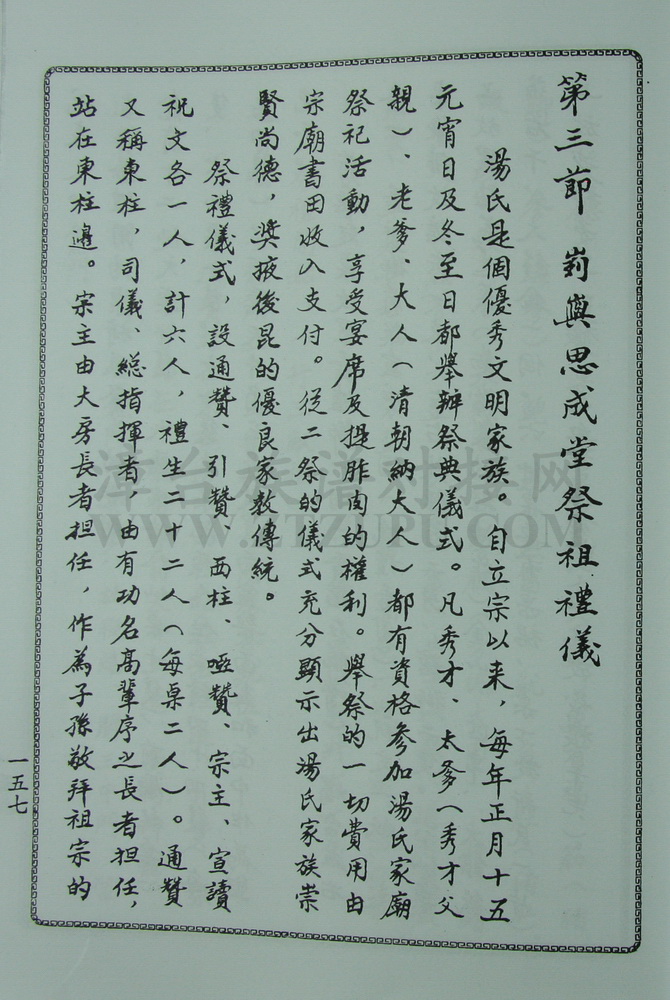 第三節 峛嶼思成堂祭祖禮儀
湯氏是個優秀文明家族。自立宗以来，每年正月十五
元宵日及冬至日都舉辦祭典儀式。凡秀才、太爹（秀才父
親）、老爹、大人（清朝納大人）都有資格參加湯氏家廟
祭祀活動，享受宴席及提胙肉的權利。舉祭的一切費用由
宗廟書田收入支付。從二祭的儀式充分顯示出湯氏家族崇
賢尚德，獎掖後昆的優良家教傳統。
祭禮儀式，設通贊、引贊、西柱、啞贊、宗主、宣讀
祝文各一人，計六人，禮生二十二人（每桌二人）。通贊
又稱東柱，司儀、總指揮者，由有功名高輩序之長者担任，
站在東柱邊。宗主由大房長者担任，作為子孫敬拜祖宗的
一五七
漳台族谱对接网
WWW.ZTZUPU.COM